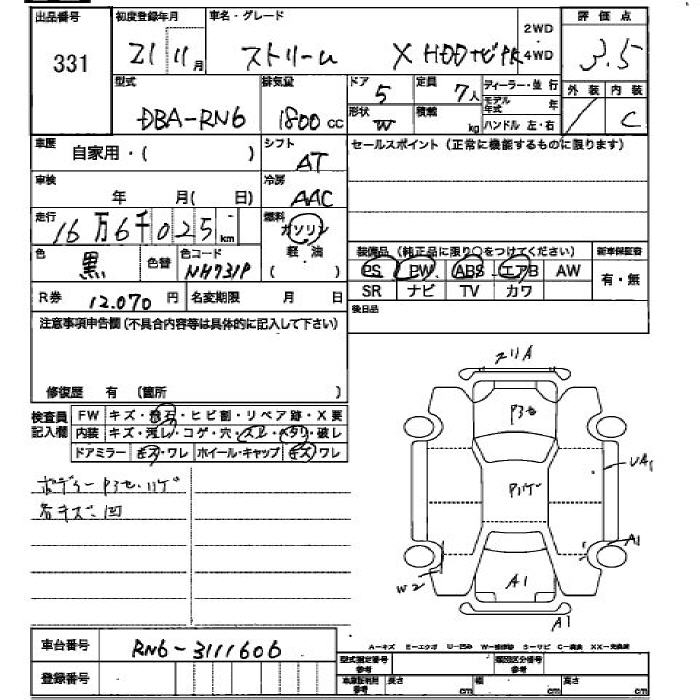 出品番号 初度登録年月 車名・グレード 2WD・4WD 評価点
331 21 11月 ストリーム X HDDナビPK 3.5
型式 排気量 ドア 定員 ディーラー・並行 外装 内装
DBA-RN6 1800cc 5 7人 モデル年式 年 C
形状 W 積載 kg ハンドル 左・右
車歴 自家用・( ) シフト AT セールスポイント (正常に機能するものに限ります)
車検 年 月( 日) 冷房 AAC
走行 16万6千025km 燃料 ガソリン
軽・油
( )
色 黒 色替 色コード NH731P
装備品 (純正品に限り○をつけてください) 新車保証書
PS PW ABS エアB AW 有・無
SR ナビ TV カワ
R券 12,070円 名変期限 月 日 後日品
注意事項申告欄(不具合内容等は具体的に記入して下さい)
修復歴 有 (箇所 )
検査員記入欄 FW キズ・飛石・ヒビ割・リペア跡・X要
内装 キズ・汚レ・コゲ・穴・スレ・ヘタリ・破レ
ドアミラー キズ・ワレ ホイール・キャップ キズ・ワレ
ボディーP3セ・ハゲ
各キズ・凹
スリA
P3セ
Pハゲ
UA1
A1
W2
A1
A1
A-キズ E-エクボ U-凹み W-補修跡 S-サビ C-腐食 XX-交換済
車台番号 RN6-3111606
登録番号
型式指定番号 参考 類別区分番号 参考
車庫証明用 参考 長さ cm 幅 cm 高さ cm